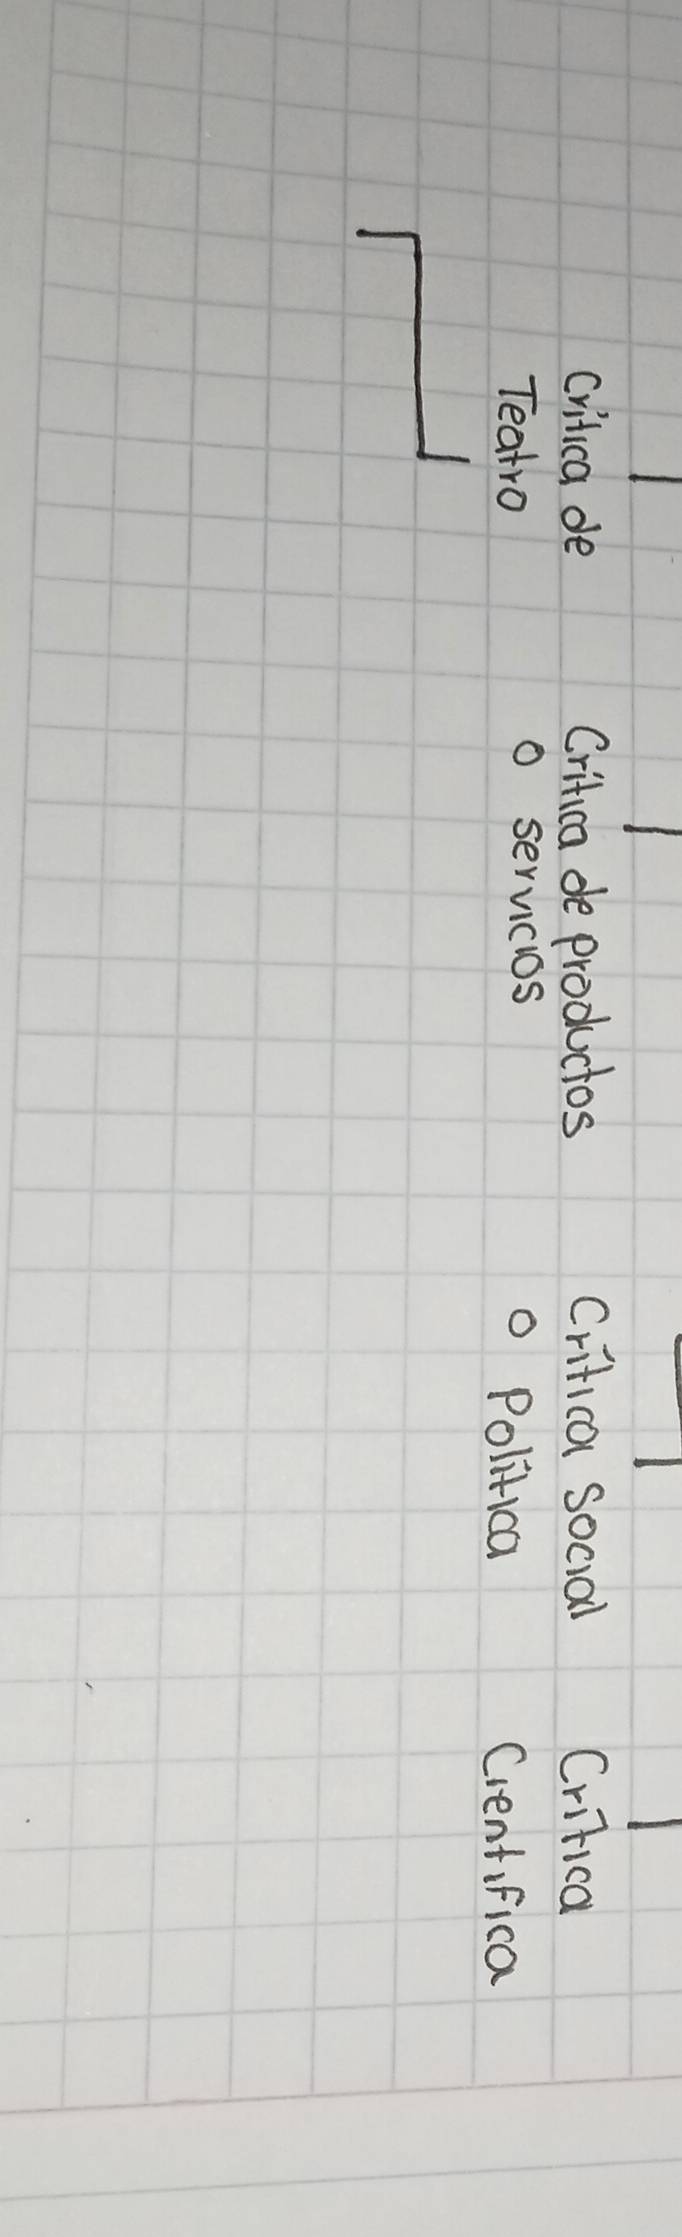 Crítica de
Teatro
Crítica de productos
o servicios
Crítica Social
o Política
Crítica
Cientifica